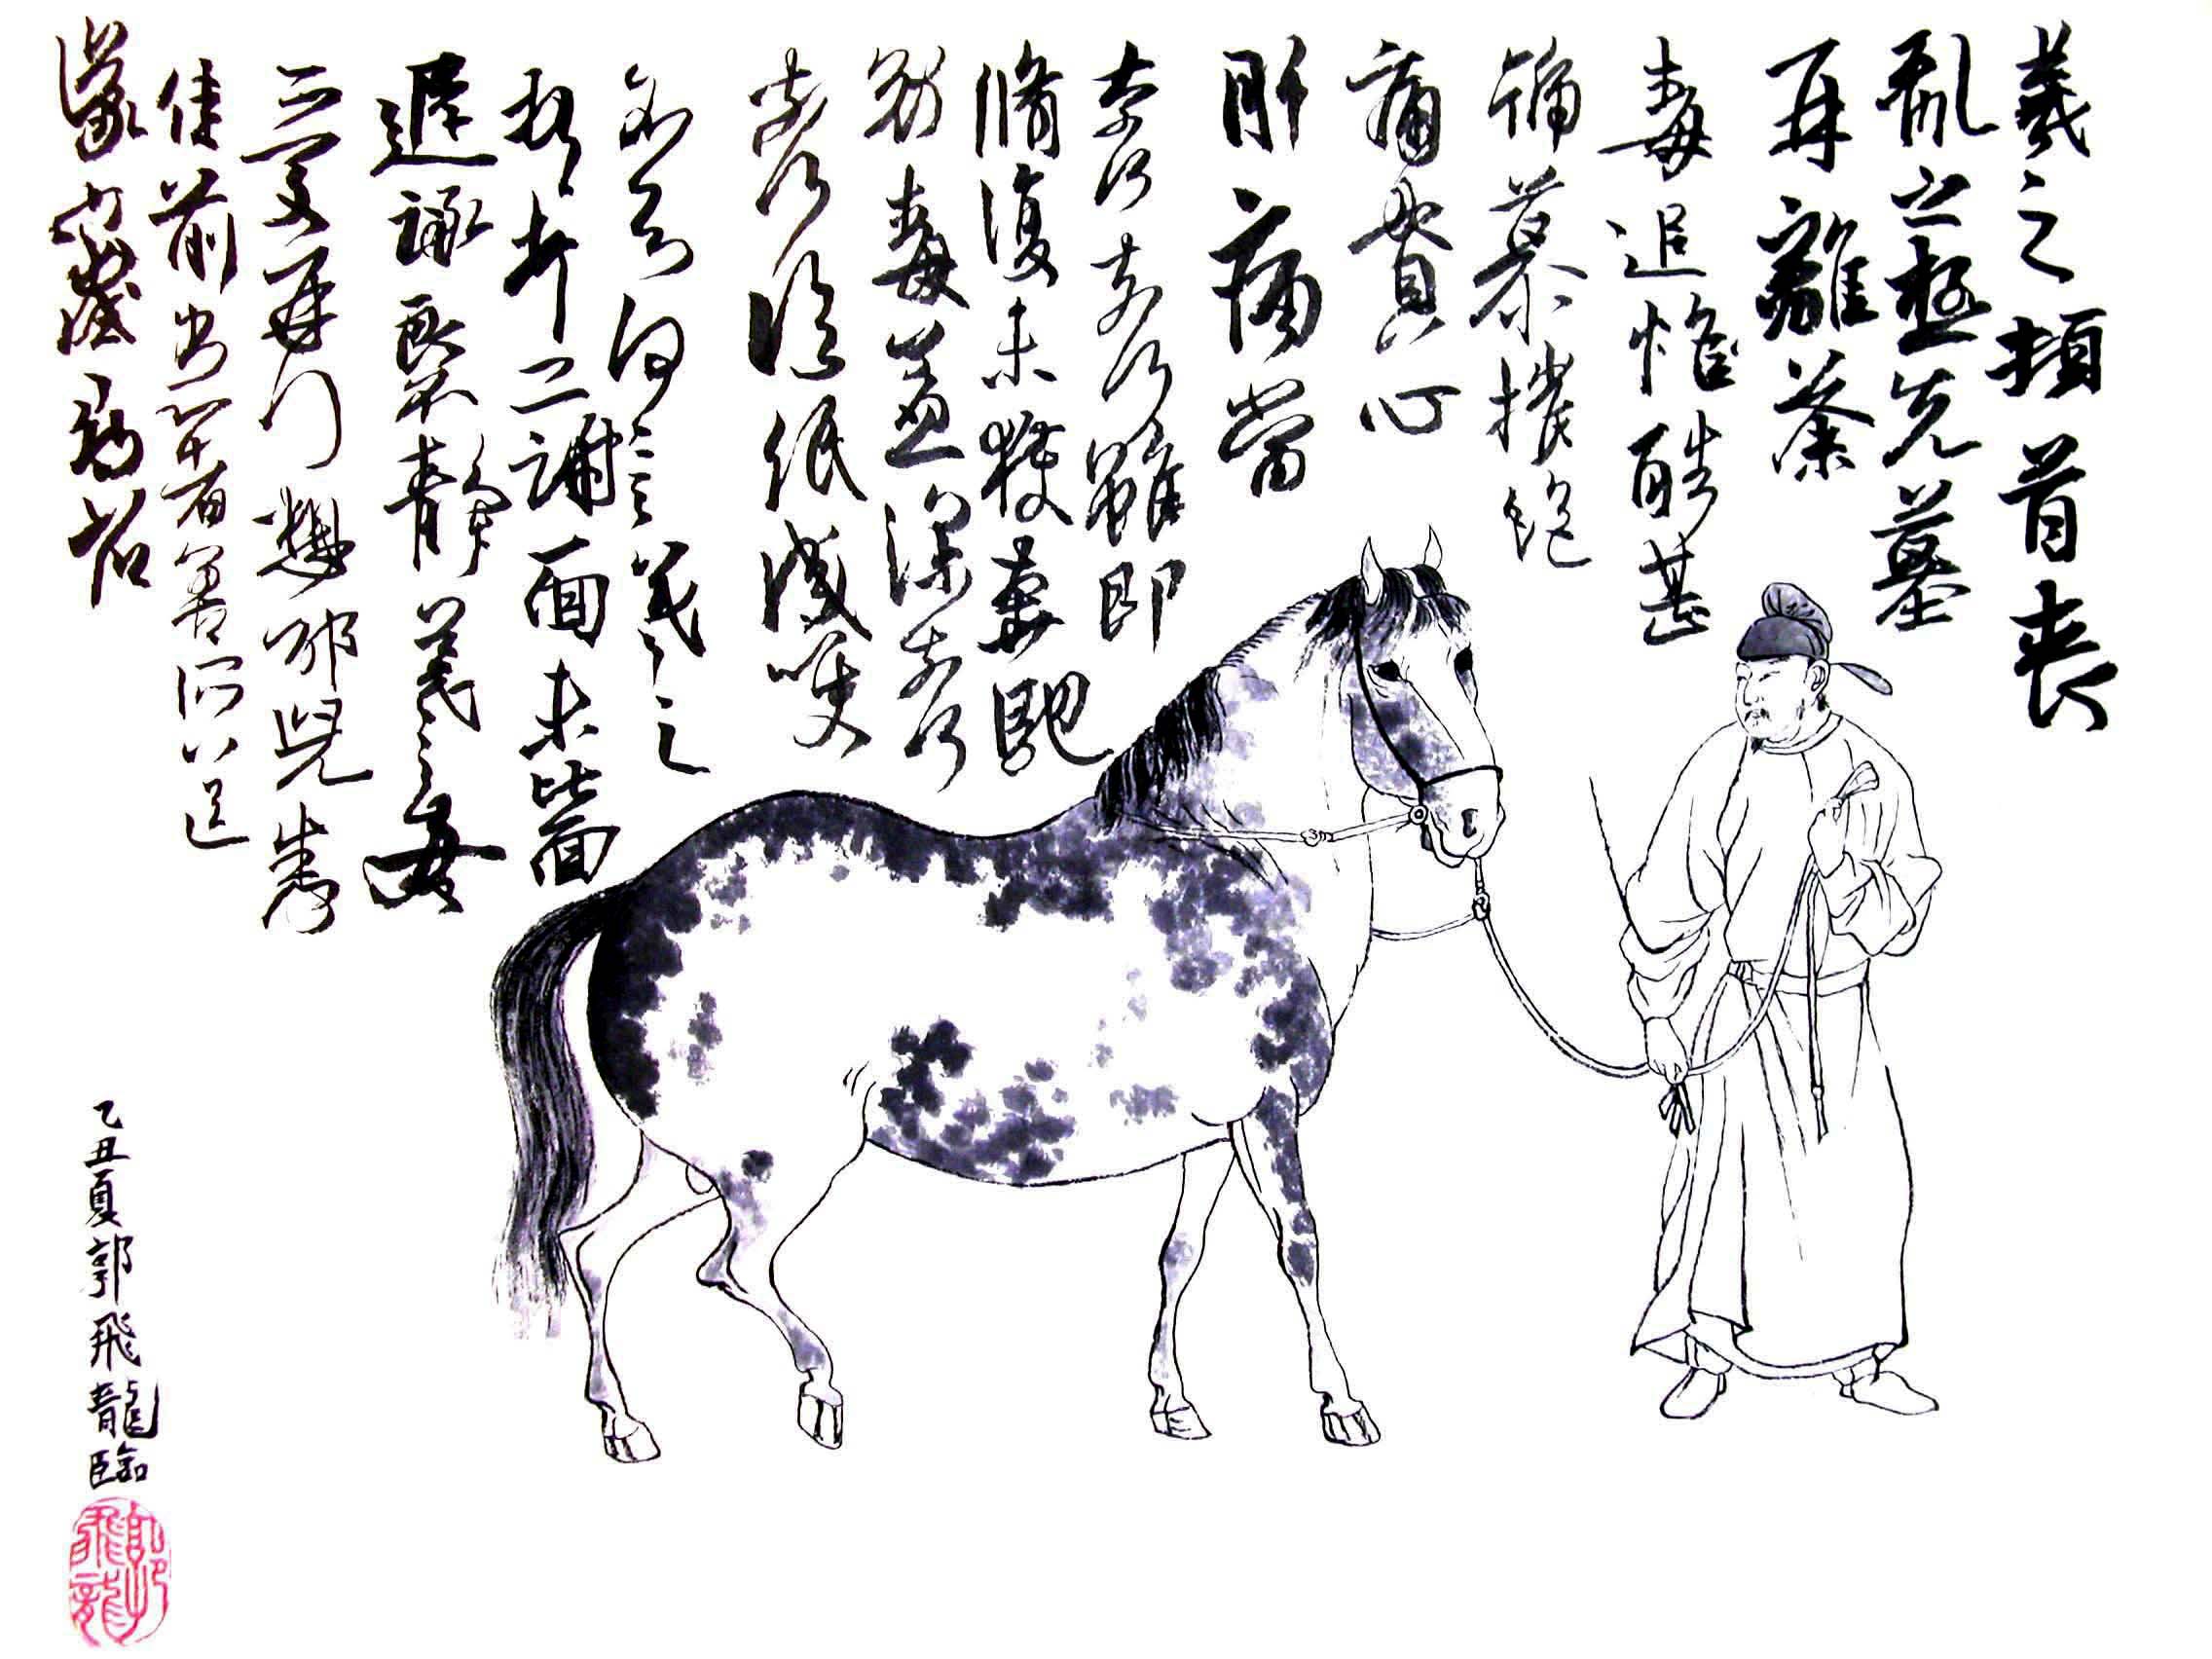 羲之頓首喪
亂之極先墓
再離荼
毒追惟酷甚
號慕摧絕
痛貫心
肝痛當
奈何奈何雖即
脩復未獲奔馳
哀毒益深奈何
奈何臨紙感哽
不知何言羲之
頓首二謝面未比面
遲詠良不靜羲之女
愛再拜想邵兒悉
佳前患者善所送
乙丑夏郭飛龍臨
郭飛龍